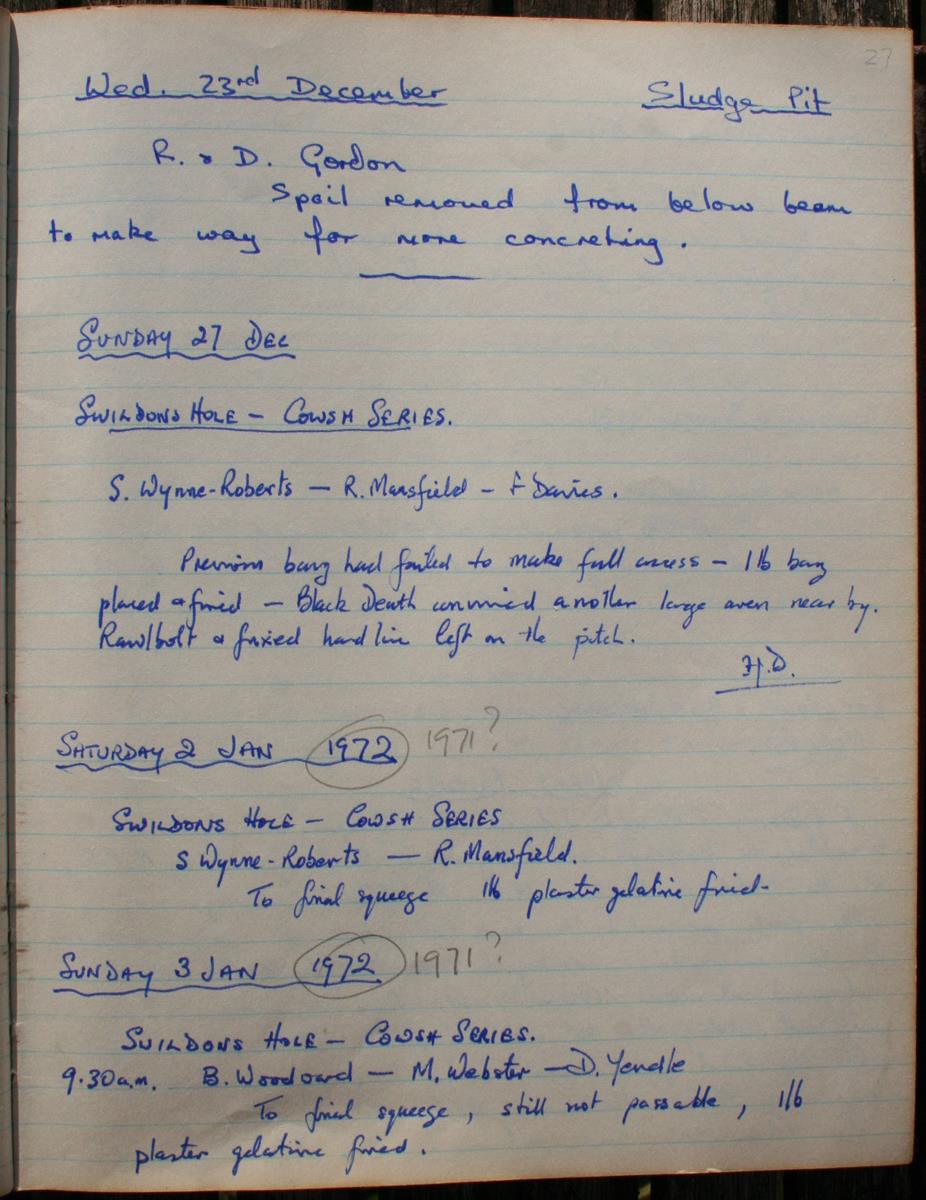 27
Wed. 23rd December Sludge Pit
R. & D. Gordon
Spoil removed from below beam
to make way for more concreting.
SUNDAY 27 DEC
SWILDONS HOLE - COWSH SERIES.
S. Wynne-Roberts - R. Mansfield - F Davies.
Previous bang had failed to make full access - 1 lb bang
placed & fired - Black Death another large aven near by.
Rawlbolt & fixed hand line left on the pitch.
F.D.
SATURDAY 2 JAN 1972 1971?
SWILDONS HOLE - COWSH SERIES
S Wynne-Roberts - R. Mansfield.
To final squeeze 1lb plaster gelatine fired-
SUNDAY 3 JAN 1972 1971?
SWILDONS HOLE - COWSH SERIES.
9.30a.m. B. Woodward - M. Webster - D. Yendle
To final squeeze, still not passable, 1lb
plaster gelatine fired.